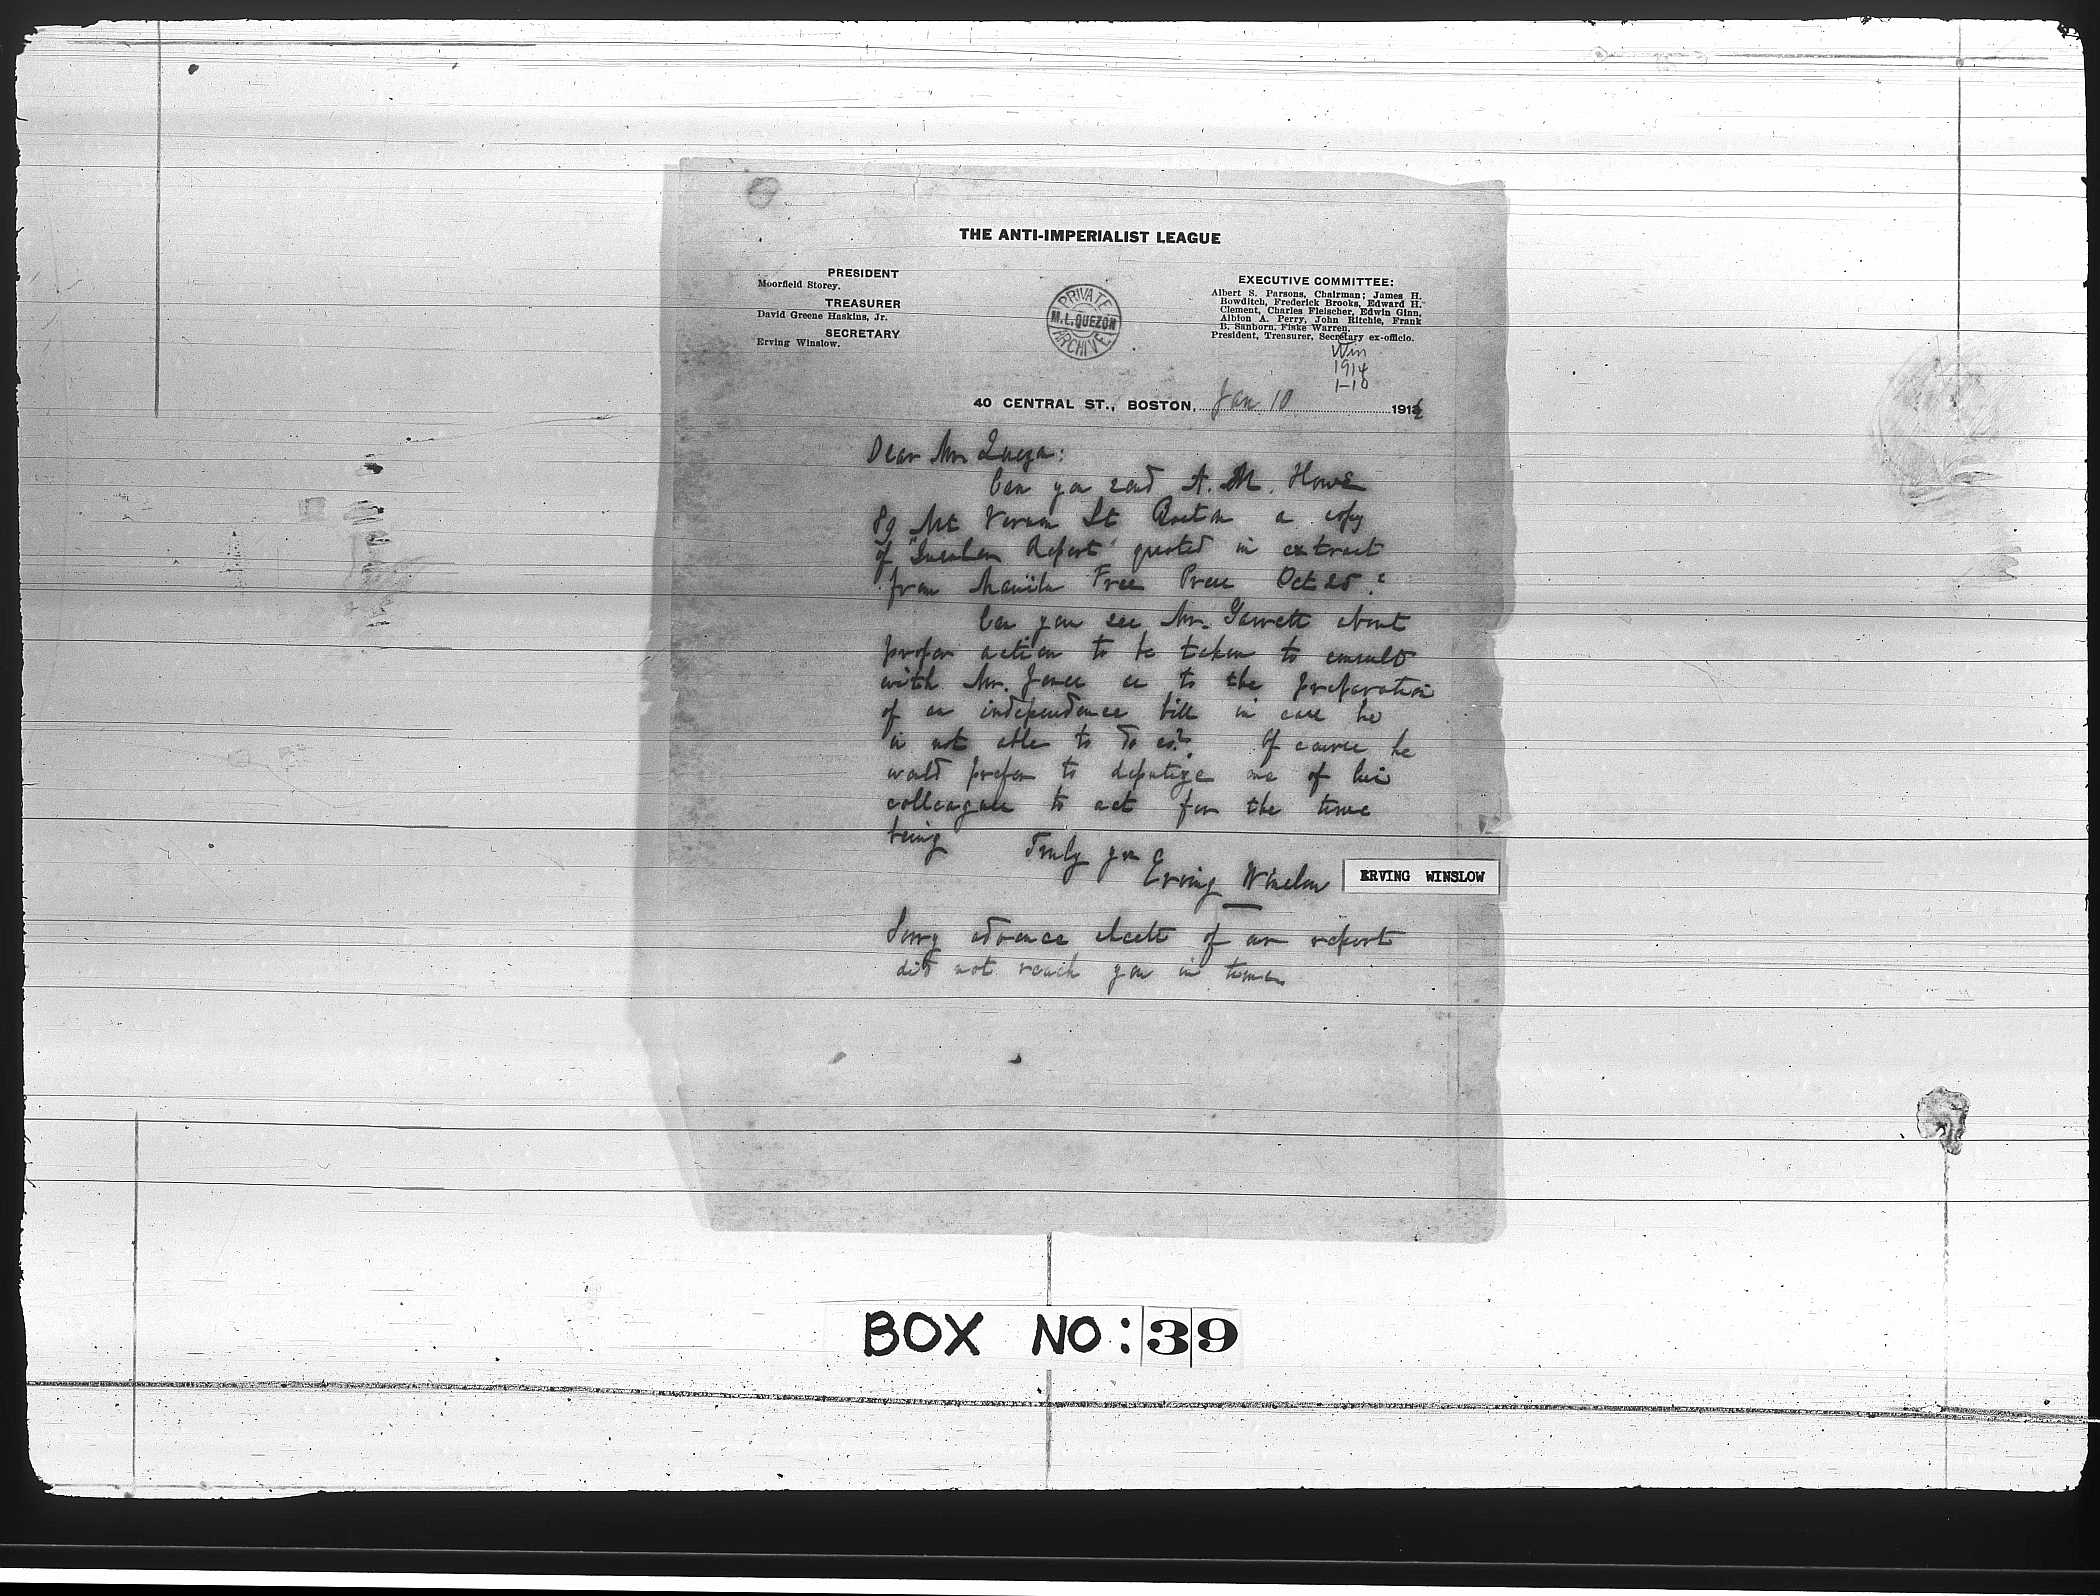 THE ANTI-IMPERIALIST LEAGUE
PRESIDENT
Moorfield Storey.
TREASURER
David Greene Haskins, Jr.
SECRETARY
Erving Winslow.
PRIVATE
M.L.QUEZON
ARCHIVE
EXECUTIVE COMMITTEE:
Albert S. Parsons, Chairman; James H.
Bowditch, Frederick Brooks, Edward H.
Clement, Charles Fleischer, Edwin Ginn,
Albion A. Perry, John Ritchie, Frank
B. Sanborn, Fiske Warren,
President, Treasurer, Secretary ex-officio.
Win
1914
1-10
40 CENTRAL ST., BOSTON, Jan 10 191
Dear Mr
Can you send A. M. Howe
89 Mt Vernon St Boston a copy
of "Insular Report" quoted in extract
from Manila Free Press Oct 25?
Can you see Mr. Garrett about
proper action to be taken to consult
with Mr. Jones as to the preparation
of an independence bill in case he
is not able to do so?. Of course he
would prefer to deputize one of his
colleagues to act for the time
being
Truly yours
Erving Winslow
ERVING WINSLOW
Sorry advance sheets of our report
did not reach you in time.
BOX NO: 39